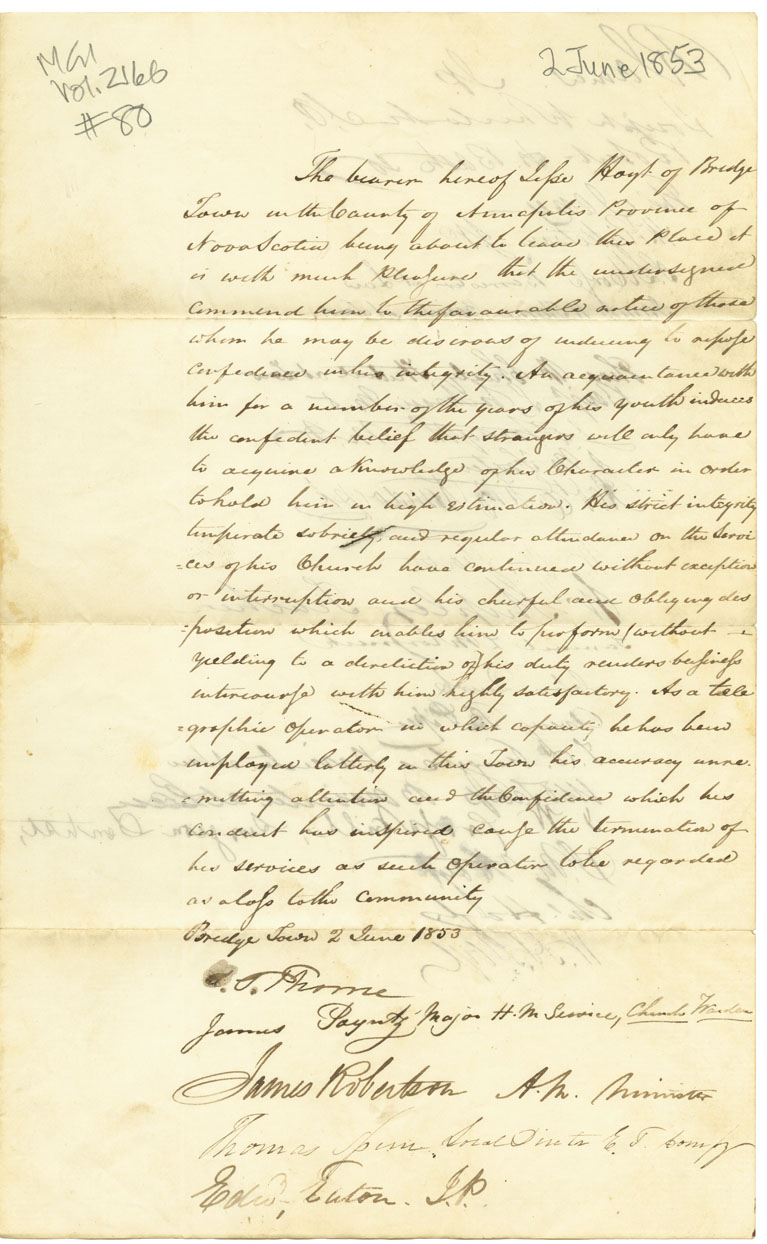 MG1
Vol. 2166
#80
2 June 1853
The bearer hereof Jesse Hoyt of Bridge
Town in the County of Annapolis Province of
Nova Scotia being about to leave this Place it
is with much Pleasure that the undersigned
commend him to the favourable notice of those
whom he may be discrous of inducing to repose
confidence in his integrity. An acquaintance with
him for a number of the years of his youth induces
the confident belief that strangers will only have
to acquire a Knowledge of his Character in order
to hold him in high Estimation. His strict integrity
temperate sobriety, and regular attendance on the Servi
=ces of his Church have continued without exception
or interruption and his chearful and obliging des
=position which enables him to perform (without
yielding to a deriliction of) his duty renders business
intercourse with him highly satisfactory. As a tele
=graphic Operator in which capacity he has been
employed latterly in this Town his accuracy unre.
=mitting attention and the Confidence which his
conduct has inspired cause the termination of
his services as such Operator to be regarded
as a loss to the community
Bridge Town 2 June 1853
S. Thorne
James Poyntz Major H.M Service, Church Warden
James Robertson A.M. Minister
Thomas Spurr Local Director E. T. Company
Edwd, Eaton. J.P.